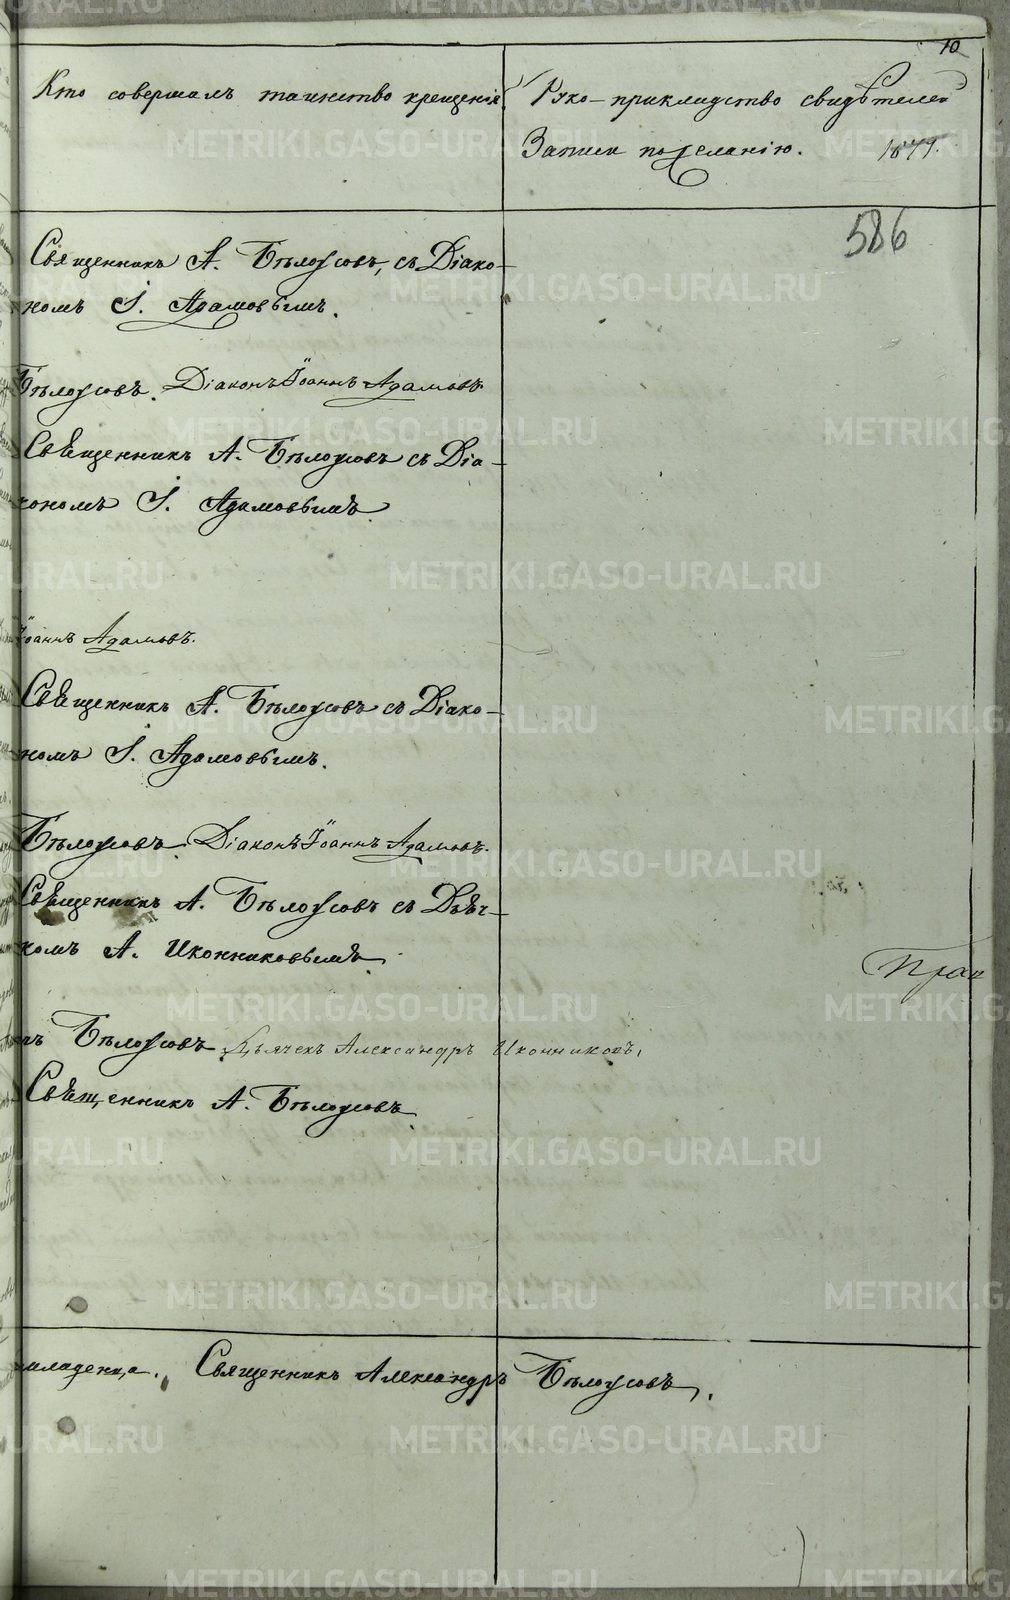 10
Кто совершалъ таинство крещенія
Руко-прикладство свидѣтелей
Записи по желанію.
1879.
586
Священникъ А. Бѣлоусовъ, съ Діако-
номъ І. Адамовымъ.
Бѣлоусовъ. Діаконъ Іоаннъ Адамовъ.
Священникъ А. Бѣлоусовъ съ Діа-
кономъ І. Адамовымъ.
Іоаннъ Адамовъ.
Священникъ А. Бѣлоусовъ съ Діако-
номъ І. Адамовымъ.
Бѣлоусовъ. Діаконъ Іоаннъ Адамовъ.
Священникъ А. Бѣлоусовъ съ Дьяч-
комъ А. Иконниковымъ.
Бѣлоусовъ. Дьячекъ Александръ Иконниковъ,
Священникъ А. Бѣлоусовъ
младенца. Священникъ Александръ Бѣлоусовъ.
METRIKI.GASO-URAL.RU